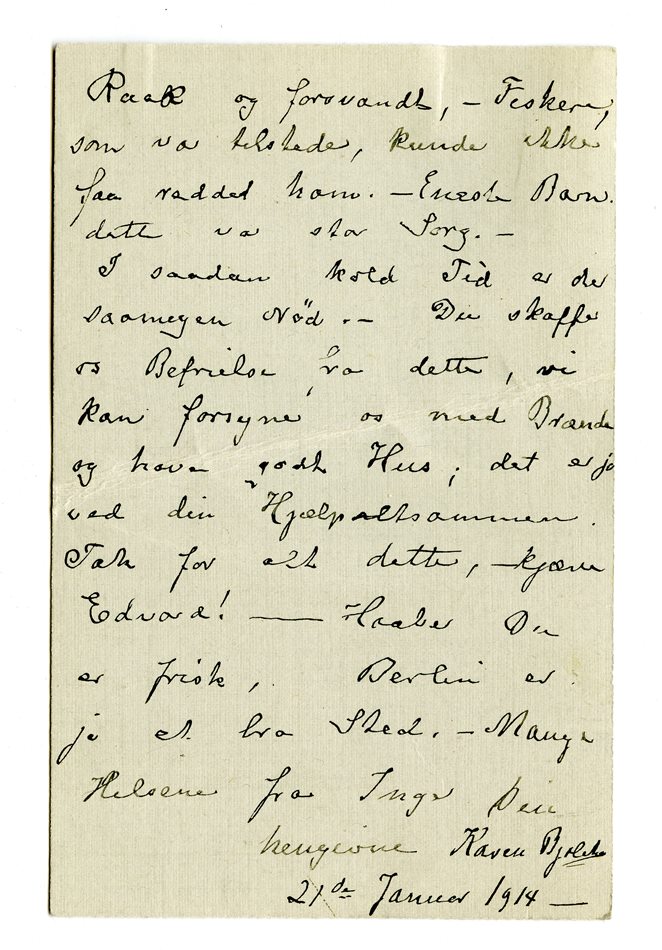 Raak og forsvandt, – Fiskere,
som va tilstede, kunde ikke
faa reddet ham. – Eneste Barn.
dette va stor Sorg. –
I saadan kold Tid er der
saamegen Nød. – Du skaffe
os Befrielse fra dette, vi
kan forsyne os med Brænde
og have godt Hus; det er jo
ved din Hjælp altsammen.
Tak for alt dette, – kjære
Edvard! — Haaber Du
er frisk, Berlin er
jo et bra Sted. – Mange
Hilsene fra Inger Din
hengivne Karen Bjølstad
21de Januar 1914 –